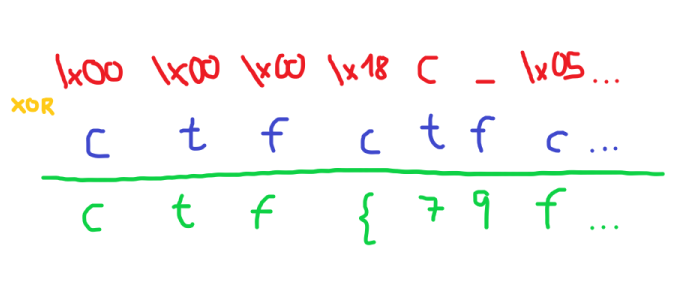 \x00 \x00 \x00 \x18 C _ \x05 ...
XOR
c t f c t f c ...
c t f { 7 9 f ...